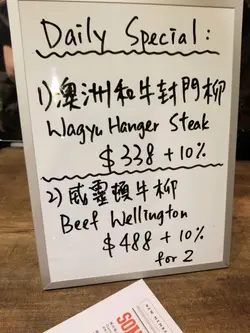 Daily Special:
1) 澳洲和牛封門柳
Wagyu Hanger Steak
$338 +10%
2) 威靈頓牛柳
Beef Wellington
$488 +10%
for 2